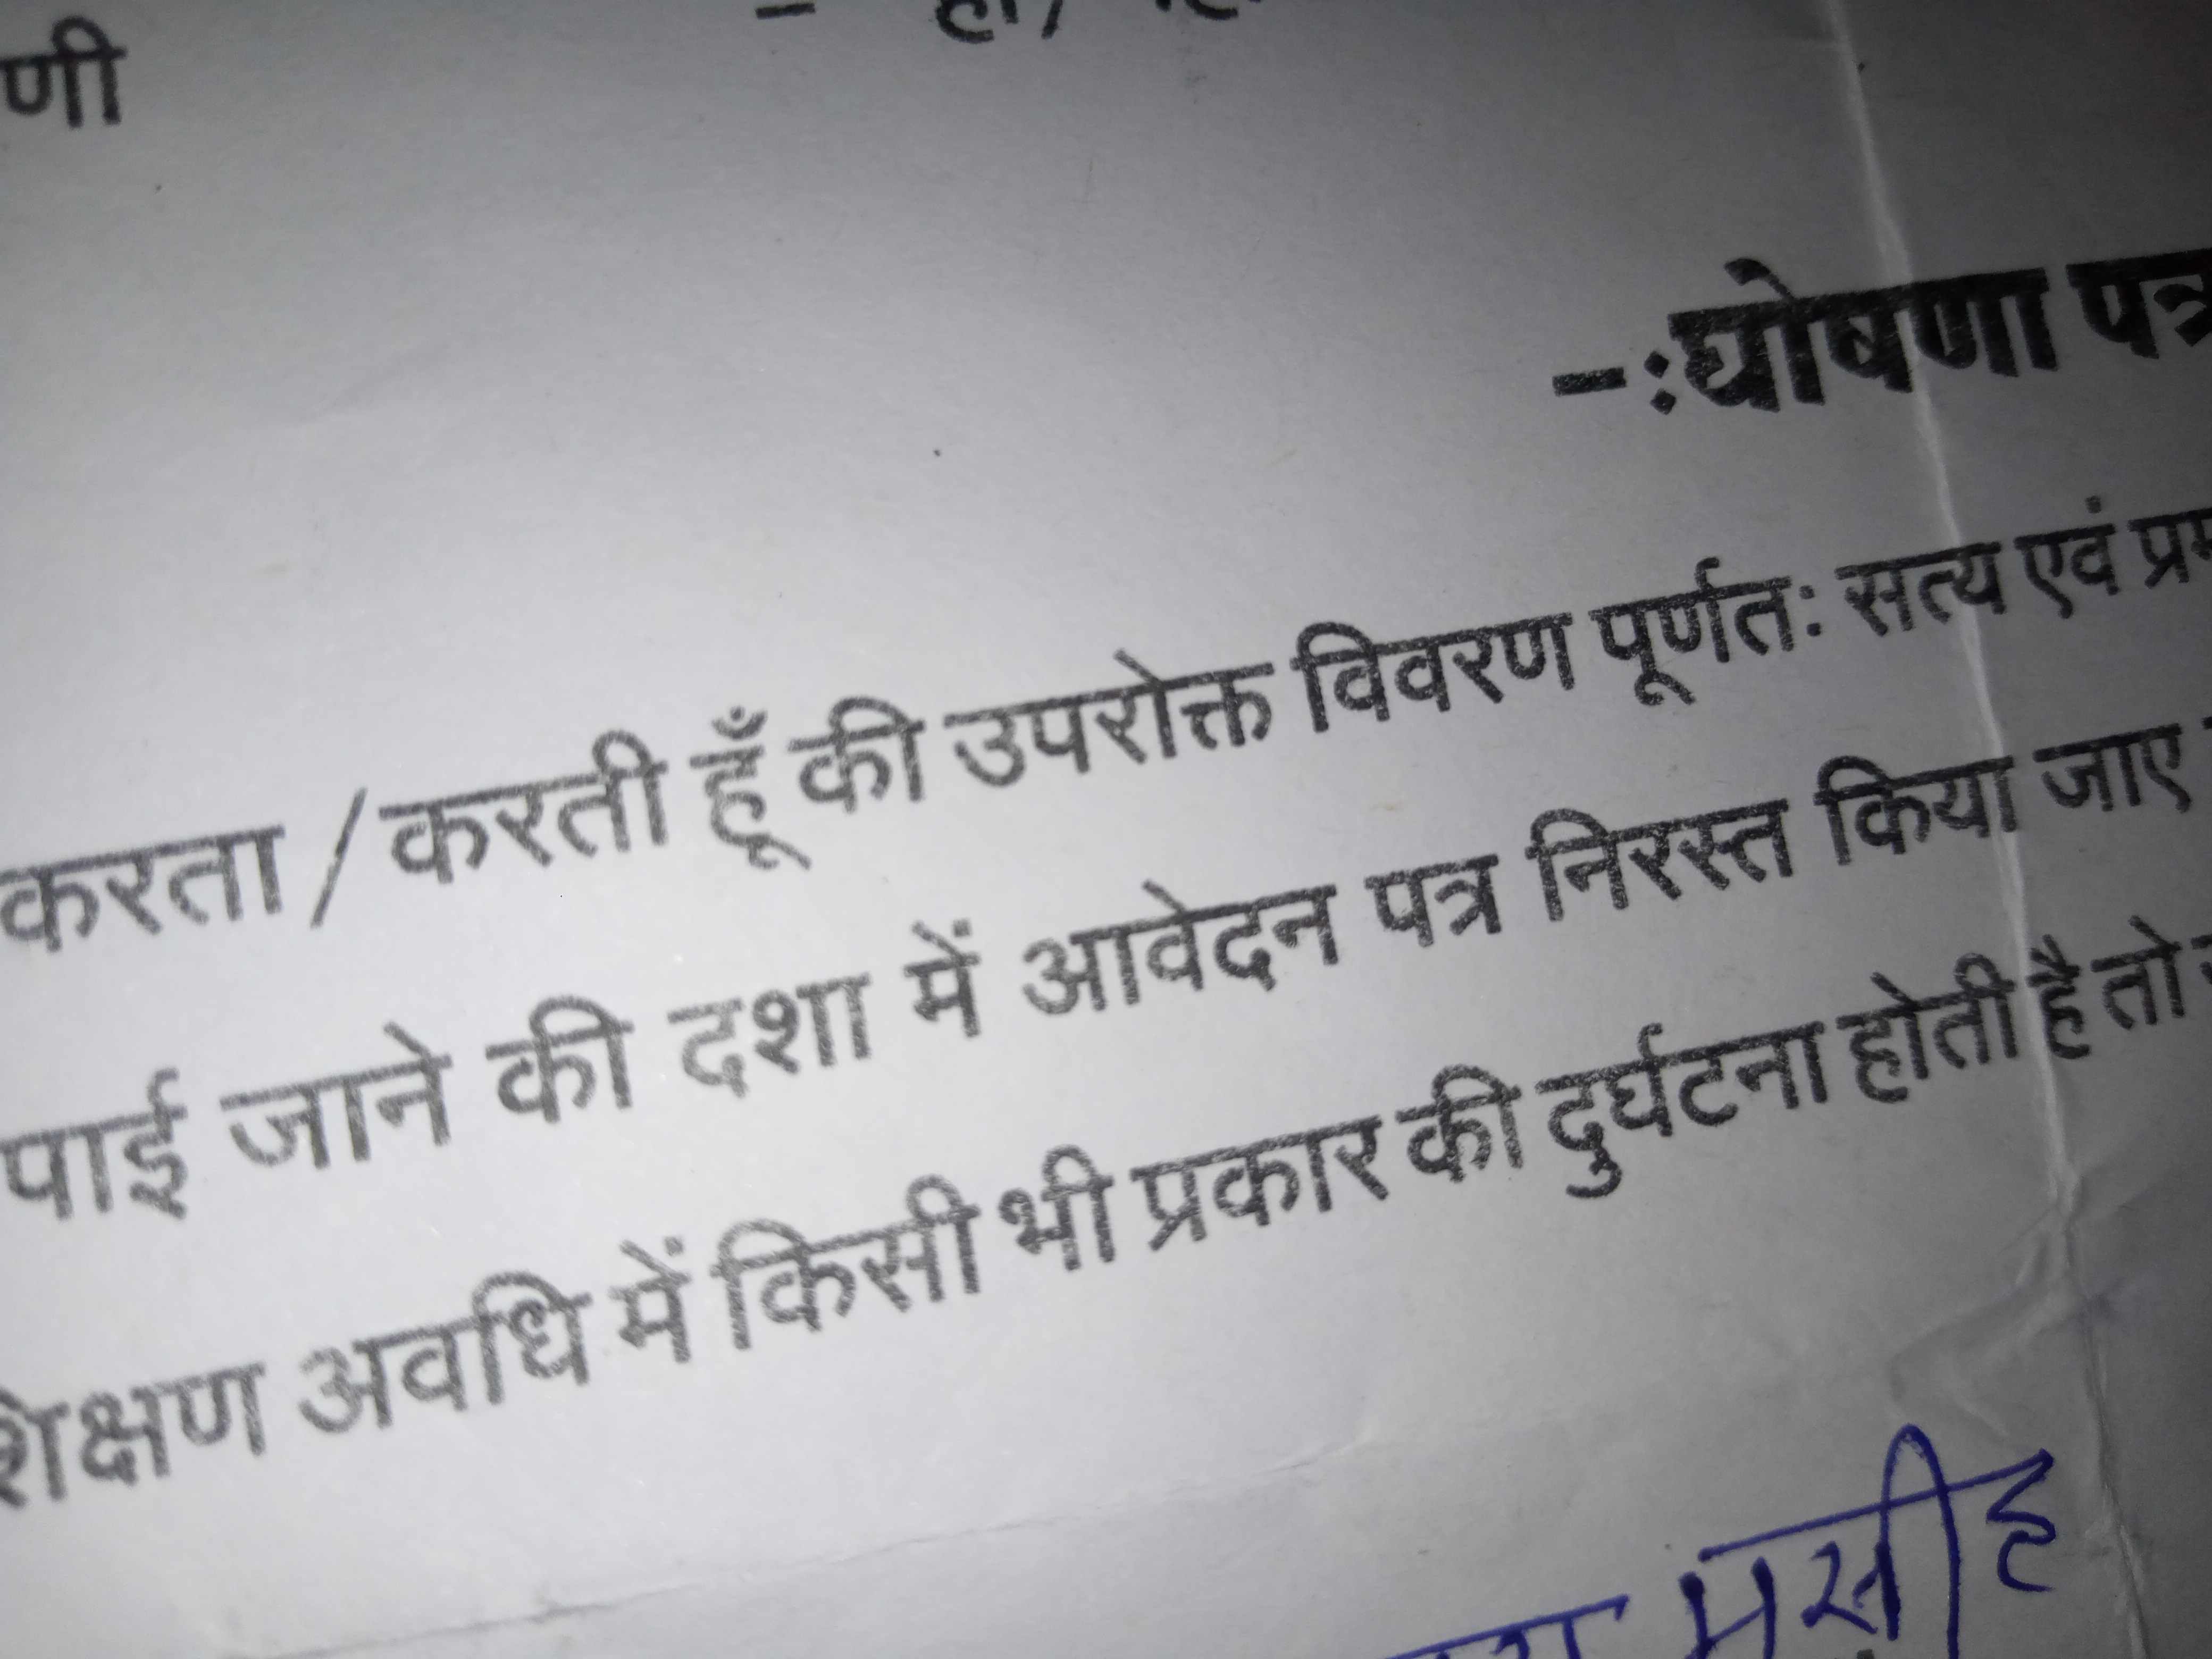 णी
-:घोषणा पत्र
करता / करती हूँ की उपरोक्त विवरण पूर्णतः सत्य एवं
पाई जाने की दशा में आवेदन पत्र निरस्त किया जाए
शिक्षण अवधि में किसी भी प्रकार की दुर्घटना होती है तो
मसीह